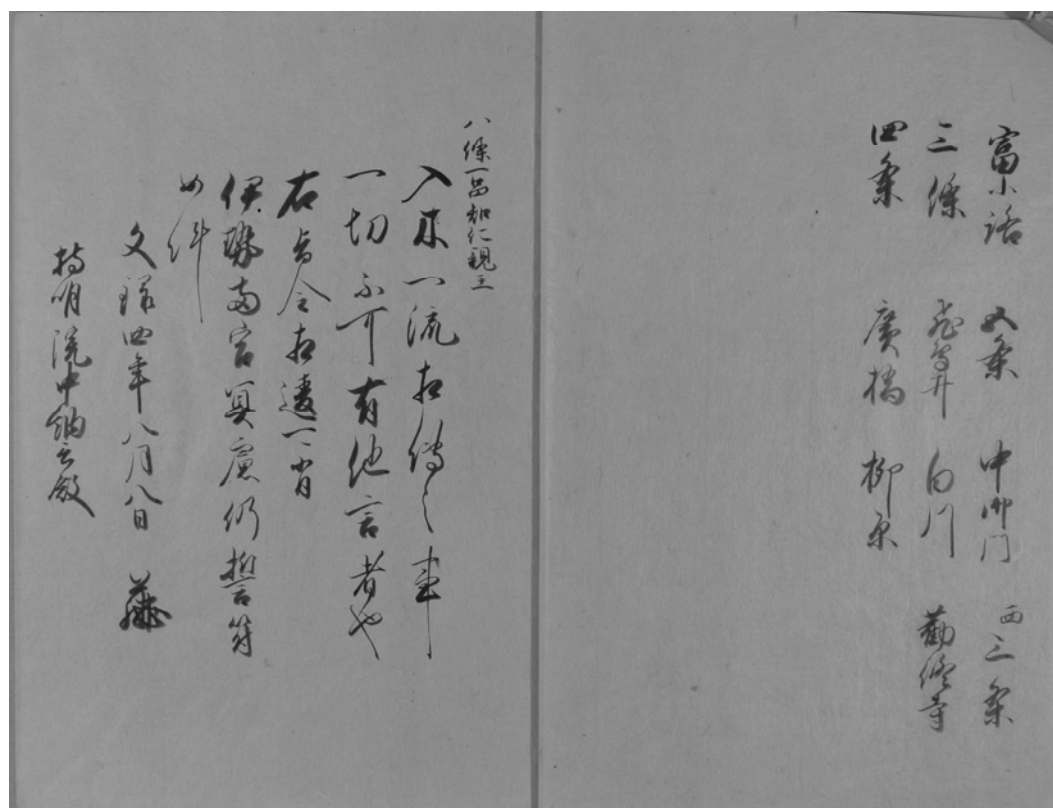 富小路 五条 中御門 西三条
三條 飛鳥井 白川 勧修寺
四条 廣橋 柳原
八條一品智仁親王
入木一流相傳之事
一切不可有他言者也
右旨令相違可背
伊勢両宮冥慮仍誓状
如件
文禄四年八月八日
持明院中納言殿